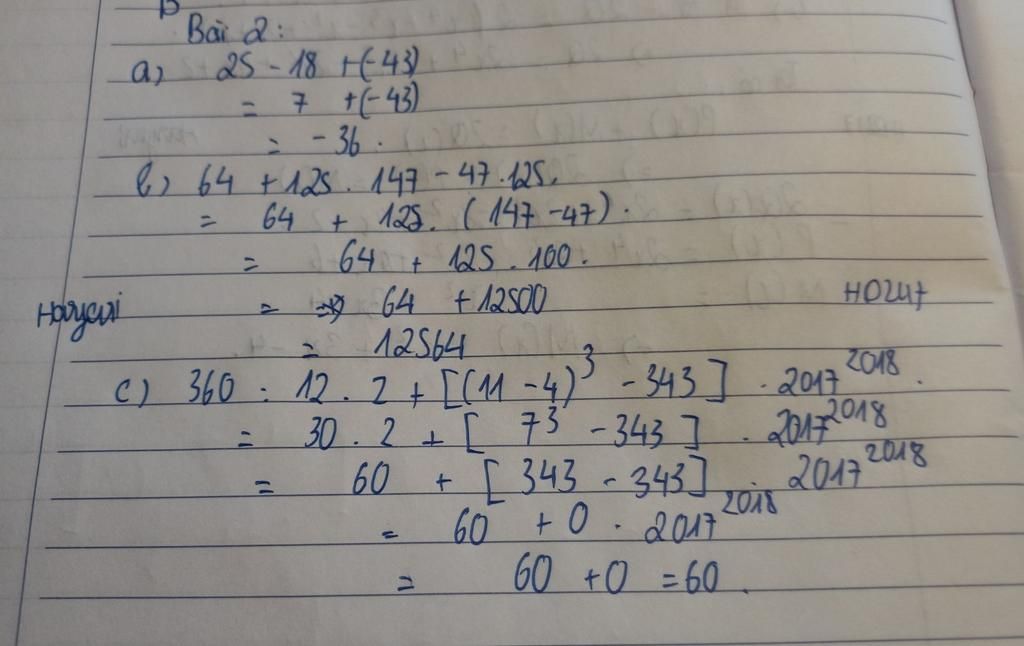 Bài 2:
a) 25 - 18 + (-43)
= 7 + (-43)
= - 36.
b) 64 + 125 . 147 - 47 . 125.
= 64 + 125. (147 - 47).
= 64 + 125 . 100.
= => 64 + 12500
= 12564
c) 360 : 12 . 2 + [(11 - 4)³ - 343] . 2017²⁰¹⁸.
= 30 . 2 + [ 7³ - 343 ] . 2017²⁰¹⁸
= 60 + [ 343 - 343] . 2017²⁰¹⁸
= 60 + 0 . 2017²⁰¹⁸
= 60 + 0 = 60.